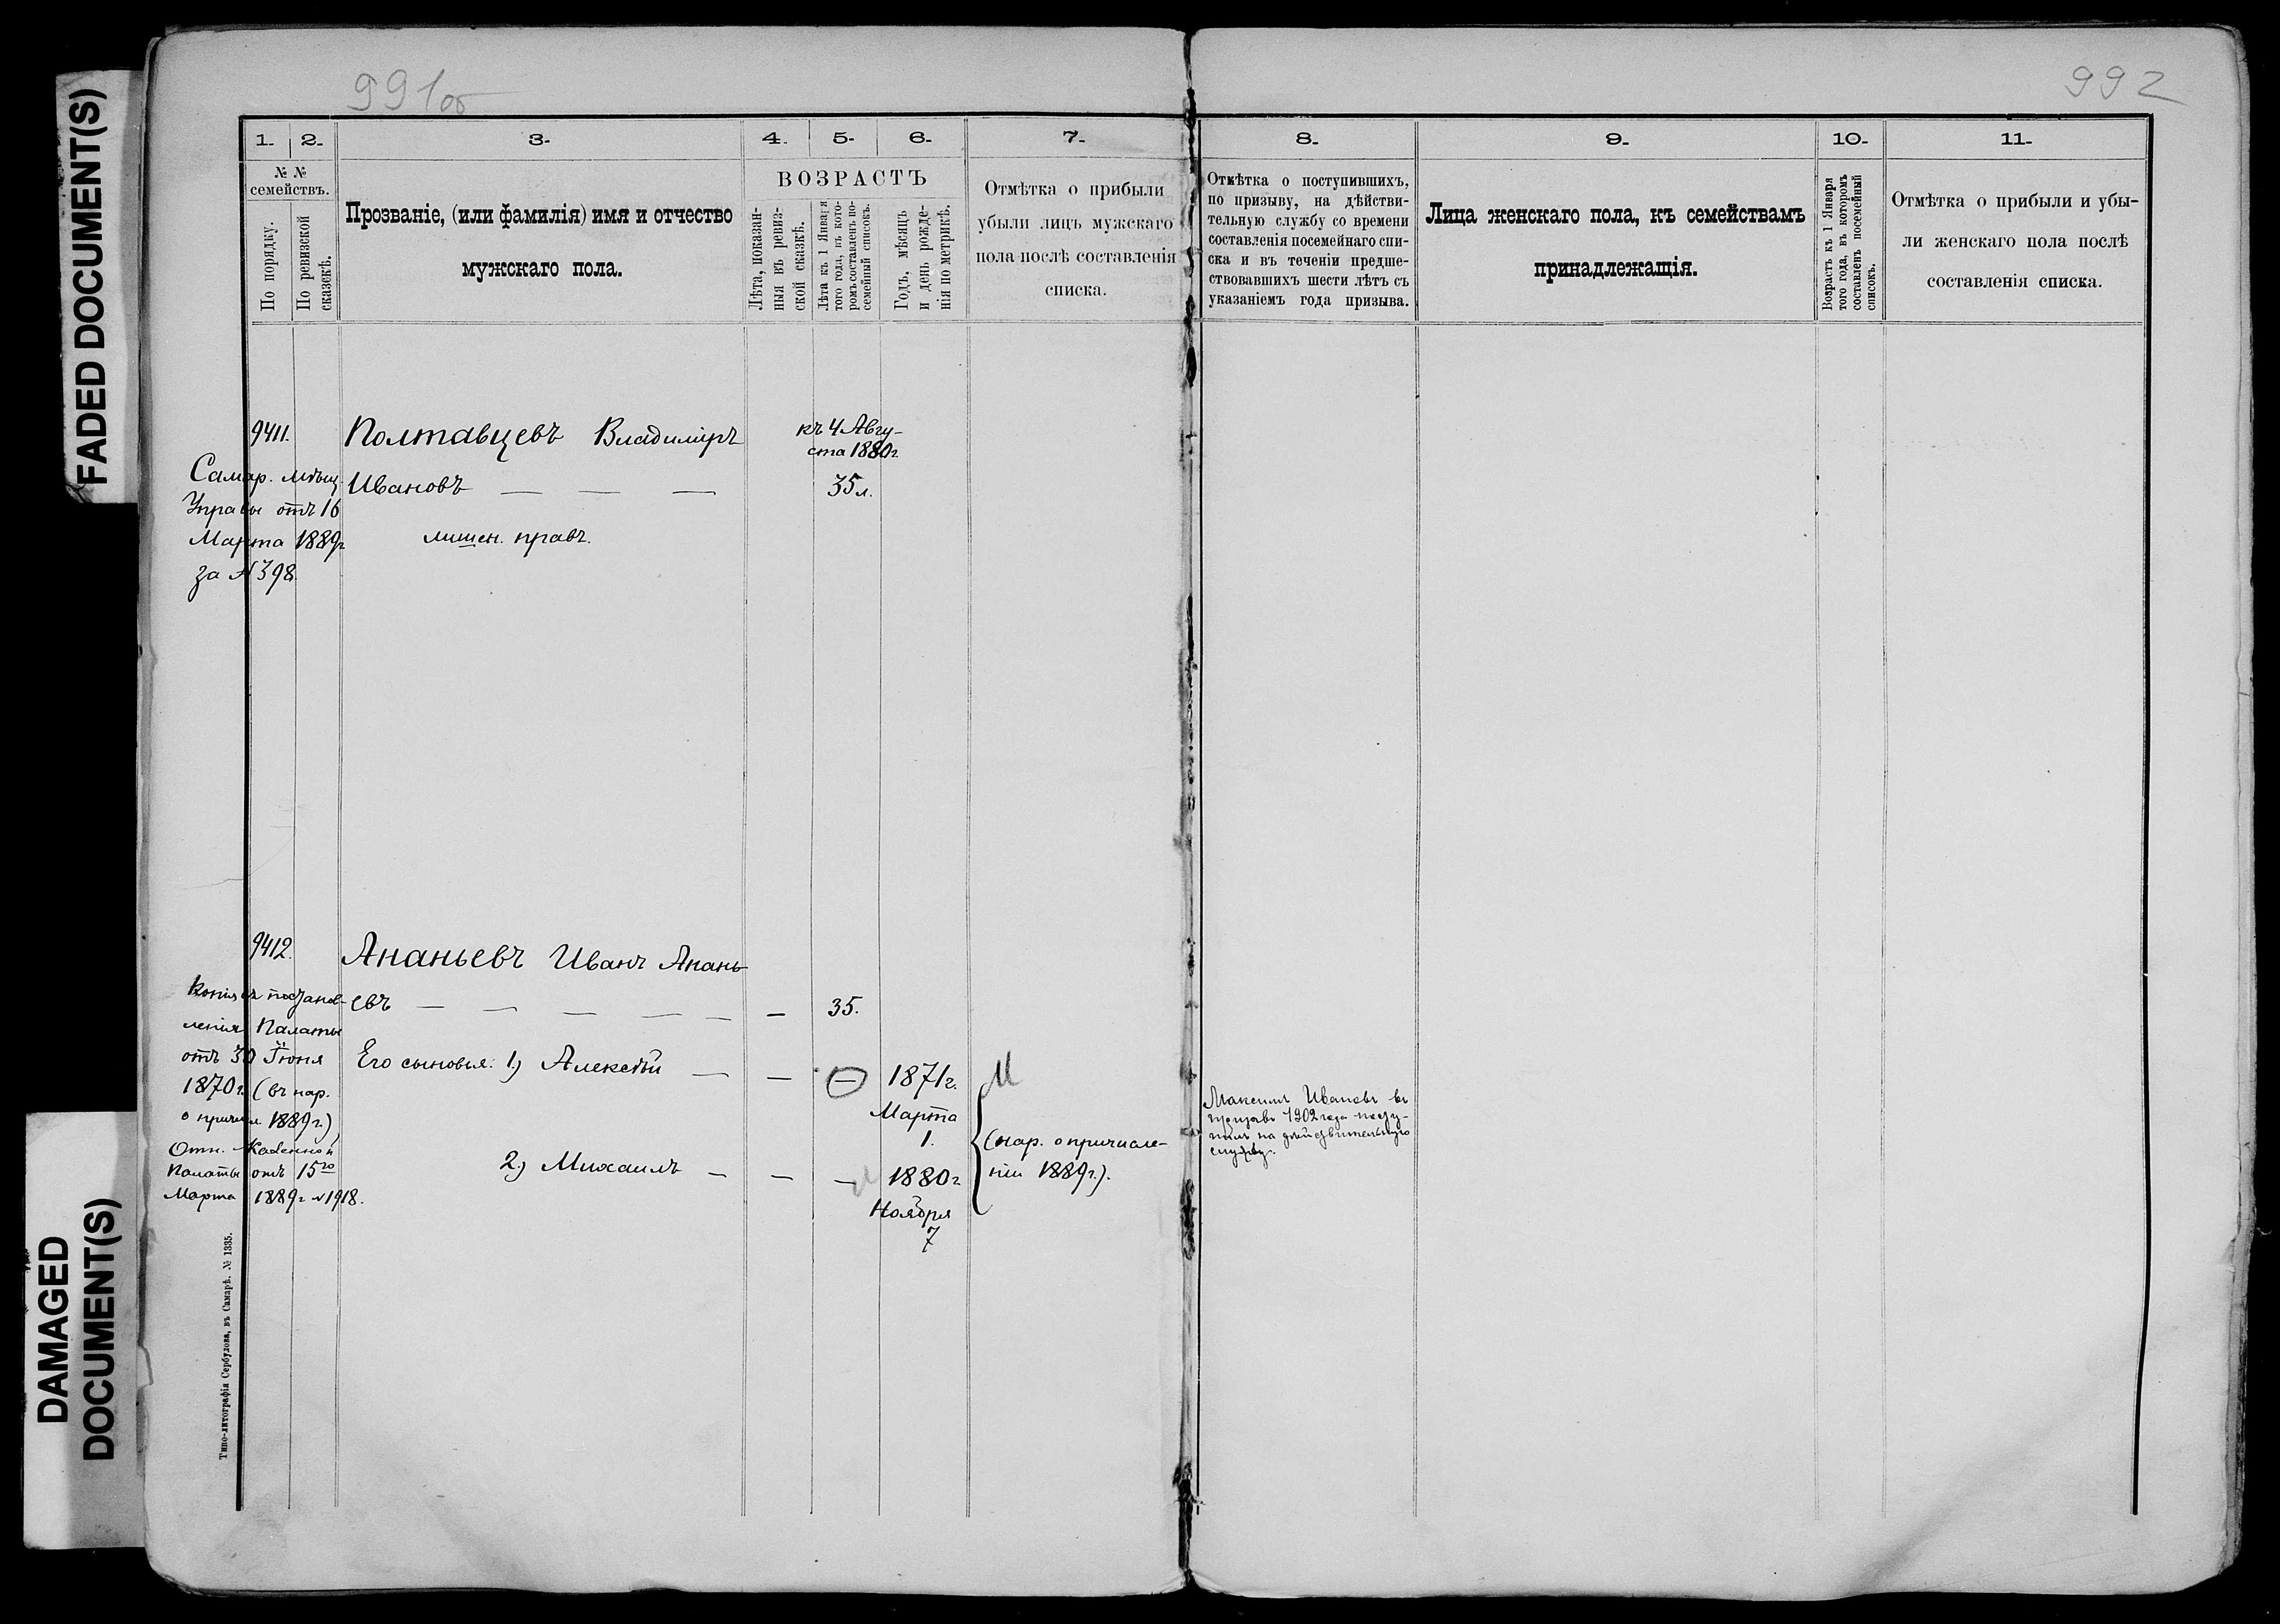 FADED DOCUMENT(S)
DAMAGED
DOCUMENT(S)
991об
992
1.
2.
3.
4.
5.
6.
7.
8.
9.
10.
11.
№ №
семействъ.
По порядку.
По ревизской
сказкѣ.
Прозваніе, (или фамилія) имя и отчество
мужскаго пола.
ВОЗРАСТЪ
Лѣта, показан-
ныя въ ревиз-
ской сказкѣ.
Лѣта къ 1 Января
того года, въ кото-
ромъ составленъ по-
семейный списокъ.
Годъ, мѣсяцъ
и день рожде-
нія по метрикѣ.
Отмѣтка о прибыли
убыли лицъ мужскаго
пола послѣ составленія
списка.
Отмѣтка о поступившихъ,
по призыву, на дѣйстви-
тельную службу со времени
составленія посемейнаго спи-
ска и въ теченіи предше-
ствовавшихъ шести лѣтъ съ
указаніемъ года призыва.
Лица женскаго пола, къ семействамъ
принадлежащія.
Возрастъ къ 1 Января
того года, въ которомъ
составленъ посемейный
списокъ.
Отмѣтка о прибыли и убы-
ли женскаго пола послѣ
составленія списка.
9411.
Самар. мѣщ.
Управы отъ 16
Марта 1889г
за № 398.
Полтавцевъ Владиміръ
Ивановъ — — —
лишен. правъ.
къ 4 Авгу-
ста 1880г
35 л.
9412.
Копія съ постанов-
ленія Палаты
отъ 30 Іюня
1870г. (въ нар.
о причисл 1889г.)
Отн. Казенной
Палаты отъ 15го
Марта 1889г №1918.
Ананьевъ Иванъ Анань
евъ — — — — — —
35.
Его сыновья: 1) Алексѣй — — —
1871г.
Марта
1.
2) Михаилъ — — —
1880г
Ноября
7
(нар. о причисле-
ніи 1889г.).
Максимъ Ивановъ въ
призывъ 1902 года посту-
пилъ на дѣйствительную
службу.
Типо-литографія Сербулова, въ Самарѣ. № 1335.